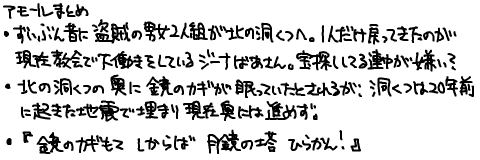 アモールまとめ
・ずいぶん昔に盗賊の男女2人組が北の洞くつへ。1人だけ戻ってきたのが
現在教会で下働きをしているジーナばあさん。宝探ししてる連中が嫌い?
・北の洞くつの奥に鏡のカギが眠っていたとされるが、洞くつは20年前
に起きた地震で埋まり現在奥には進めず。
・『鏡のカギもて しからば 月鏡の塔 ひらかん!』